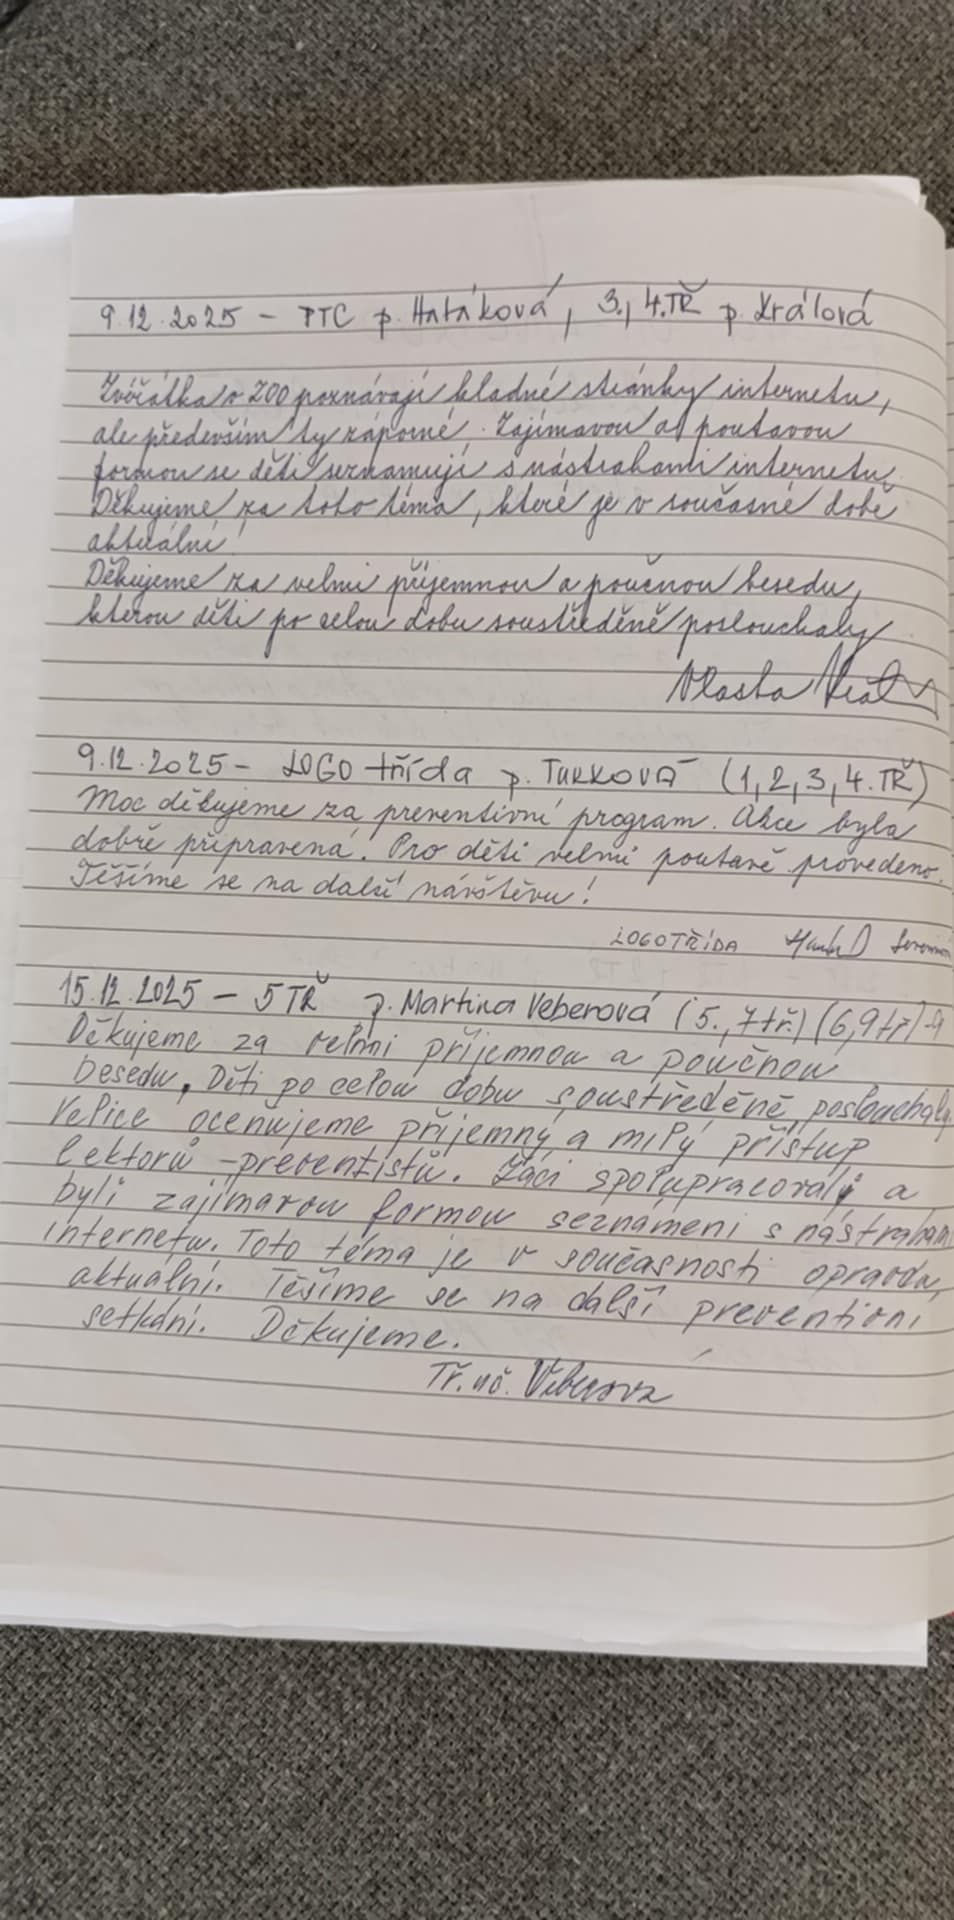 9.12.2025 - PTC p. Hatáková, 3., 4.TŘ p. Králová
Zvířátka v ZOO poznávají kladné stránky internetu,
ale především ty záporné. Zajímavou a poutavou
formou se děti seznamují s nástrahami internetu.
Děkujeme za toto téma, které je v současné době
aktuální
Děkujeme za velmi příjemnou a poučnou besedu,
kterou děti po celou dobu soustředěně poslouchaly
Vlasta
9.12.2025 - LOGO třída p. TURKOVÁ (1,2,3,4.TŘ)
Moc děkujeme za preventivní program. Akce byla
dobře připravená. Pro děti velmi poutavě provedeno.
Těšíme se na další návštěvu!
LOGOTŘÍDA
15.12.2025 - 5 TŘ p. Martina Veberová (5., 7tř.) (6,9tř)
Děkujeme za velmi příjemnou a poučnou
besedu. Děti po celou dobu soustředěně poslouchaly
Velice oceňujeme příjemný a milý přístup
lektorů - preventistů. Žáci spolupracovali a
byli zajímavou formou seznámeni s nástrahami
internetu. Toto téma je v současnosti opravdu
aktuální. Těšíme se na další preventivní
setkání. Děkujeme.
Tř. uč. Veberová